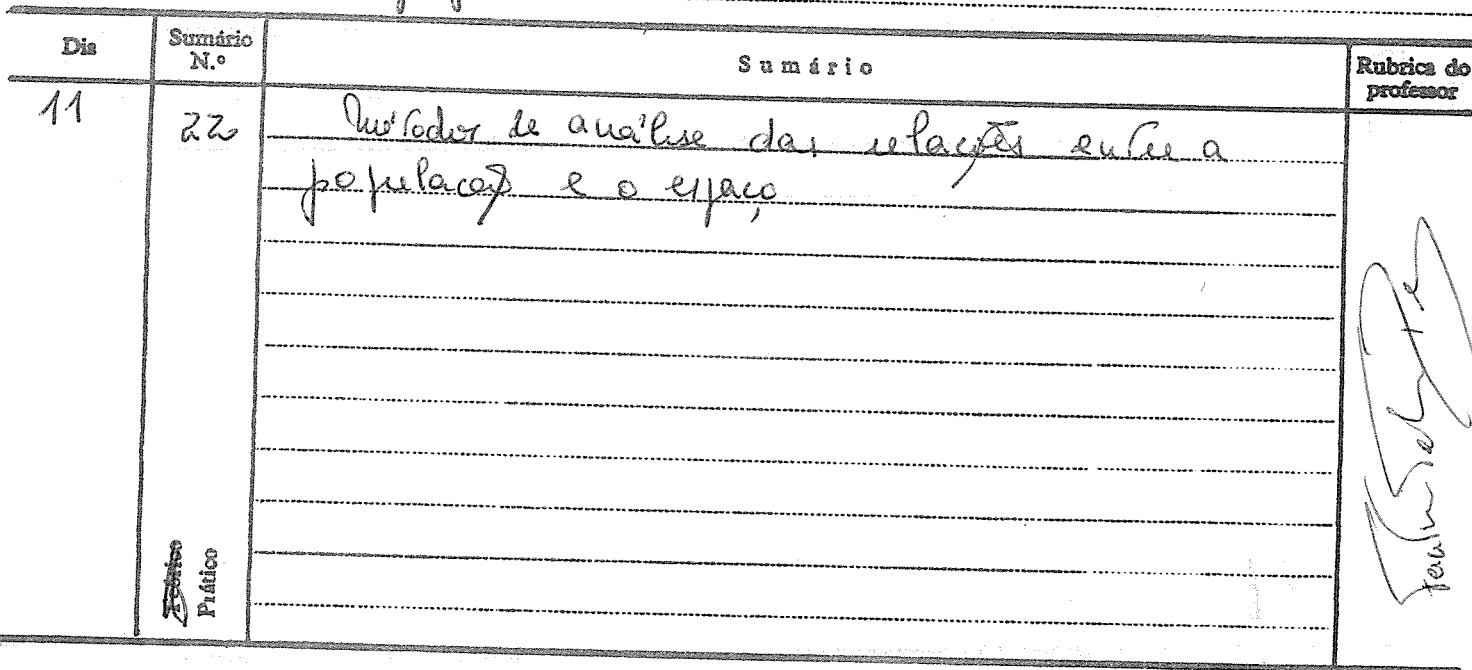 Dia
Sumário N.º
Sumário
Rubrica do professor
11
22
Métodos de análise das relações entre a
população e o espaço
Teórico
Prático